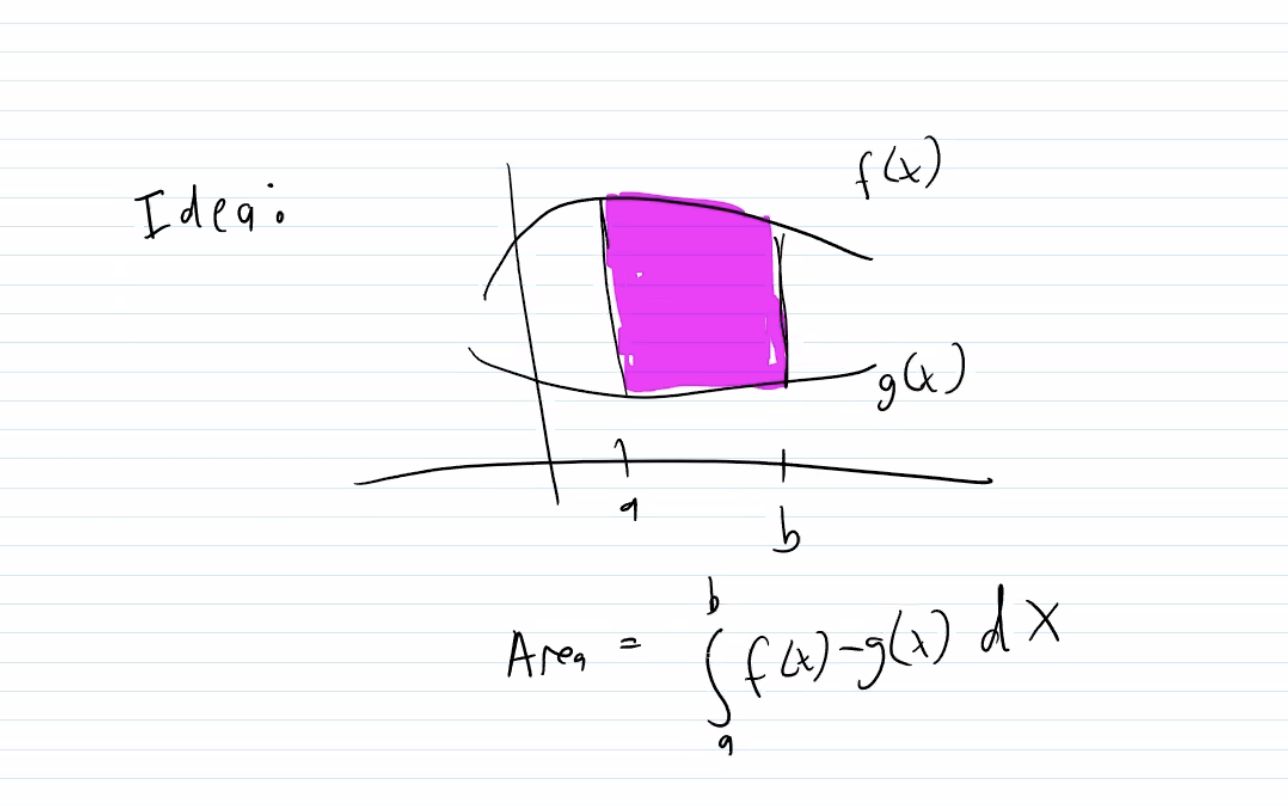 Idea:
f(x)
g(x)
a
b
Area = ∫_a^b f(x)-g(x) dx